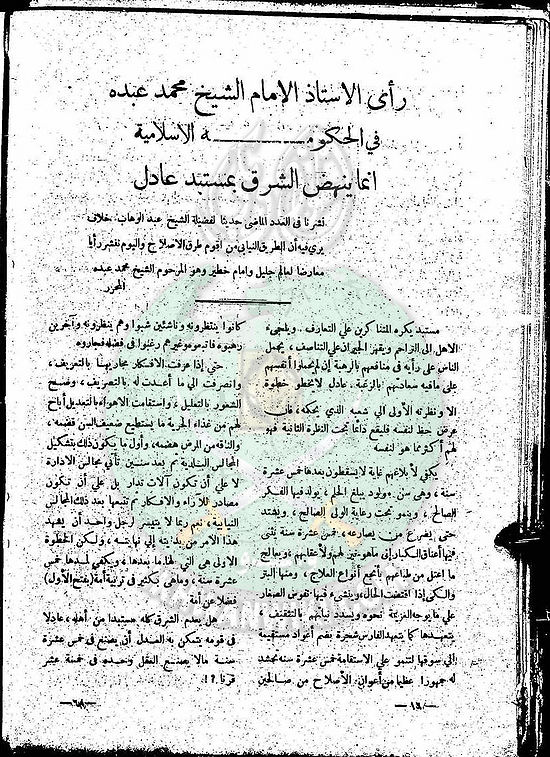 رأى الاستاذ الإمام الشيخ محمد عبده
في الحكومـــــــة الاسلامية
انما ينهض الشرق بمستبد عادل
نشرنا فى العدد الماضى حديثا لفضيلة الشيخ عبد الوهاب خلاف
يرى فيه أن الطريق النيابى من أقوم طرق الاصلاح واليوم ننشر رأيا
معارضا لعالم جليل وامام خطير وهو المرحوم الشيخ محمد عبده
المحرر
مستبد يكره المتناكرين على التعارف . ويلجىء
الاهل الى التراحم ويقهر الجيران على التناصف ، يحمل
الناس على رأيه فى منافعهم بالرهبة إن لم يحملوا أنفسهم
على مافيه سعادتهم بالرغبة . عادل لا يخطو خطوة
الا ونظرته الأولى الى شعبه الذي يحكمه ، فان
عرض حظ لنفسه فليقع دائما تحت النظرة الثانية فهو
لهم أكثر مما هو لنفسه
يكفي لأبلاغهم غاية لا يسقطون بعدها خمس عشرة
سنة ، وهى سن مولود يبلغ الحلم ، يولد فيها الفكر
الصالح ، وينمو تحت رعاية الولى الصالح ، ويشتد
حتى يصرع من يصارعه ، خمس عشرة سنة يثنى
فيها أعناق الكبار إلى ماهو خير لهم ولأعقابهم ، ويعالج
ما اعتل من طباعهم بأنجع أنواع العلاج ، ومنها البتر
والكى إذا اقتضت الحال ، وينشىء فيها نفوس الصغار
على ما يوجه العزيمة نحوه ويسدد نياتهم بالتثقيف ،
يتعهدها كما يتعهد الغارس شجرة بضم أعواد مستقيمة
إلى سوقها لتنمو على الاستقامة خمس عشرة سنة يحشد
له جمهورا عظيما من أعوان الأصلاح من صالحين
كانوا ينتظرونه وناشئين شبوا وهم ينتظرونه وآخرين
رهبوه فاتبعوه وغيرهم رغبوا فى فضله فجاروه
حتى إذا عرفت الافكار مجاريها بالتعريف ،
وانصرفت الى ما أعدت له بالتصريف ، وصح
الشعور بالتعليل ، واستقامت الاهواء بالتعديل أباح
لهم من غذاء الحرية ما يستطيع ضعيف السن قضمه ،
والناقه من المرض هضمه ، وأول ما يكون ذلك بتشكيل
المجالس البلدية ثم بعد سنين تأتى مجالس الادارة
لا على أن تكون آلات تدار بل على أن تكون
مصادر للآراء والافكار ثم تتبعها بعد ذلك المجالس
النيابية ، نعم ربما لا يتيسر لرجل واحد أن يشهد
هذا الامر من بدايته إلى نهايته ، ولكن الخطوة
الاولى هى التى لها ما بعدها ، ويكفى لمدها خمس
عشرة سنة ، وماهى بكثير فى تربية أمة (بفتح الأول)
فضلا عن أمة .
هل يعدم الشرق كله مستبدا من أهله ، عادلا
فى قومه يتمكن به العدل أن يصنع فى خمس عشرة
سنة مالا يصنع العقل وحده فى خمسة عشر
قرنا ؟ ! .